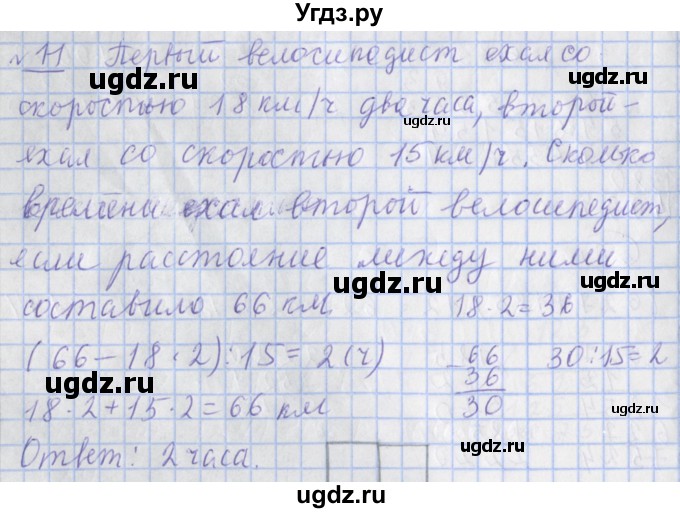 Угдз.ру
№ 11 Первый велосипедист ехал со
скоростью 18 км/ч два часа, второй -
ехал со скоростью 15 км/ч. Сколько
времени ехал второй велосипедист,
если расстояние между ними
составило 66 км. 18 · 2 = 36
(66 - 18 · 2) : 15 = 2 (ч) - 66 30 : 15 = 2
36
18 · 2 + 15 · 2 = 66 км 30
Ответ: 2 часа.
ugdz.ru
ugdz.ru
ugdz.ru
ugdz.ru
ugdz.ru
ugdz.ru
ugdz.ru
ugdz.ru
ugdz.ru
ugdz.ru
ugdz.ru
ugdz.ru